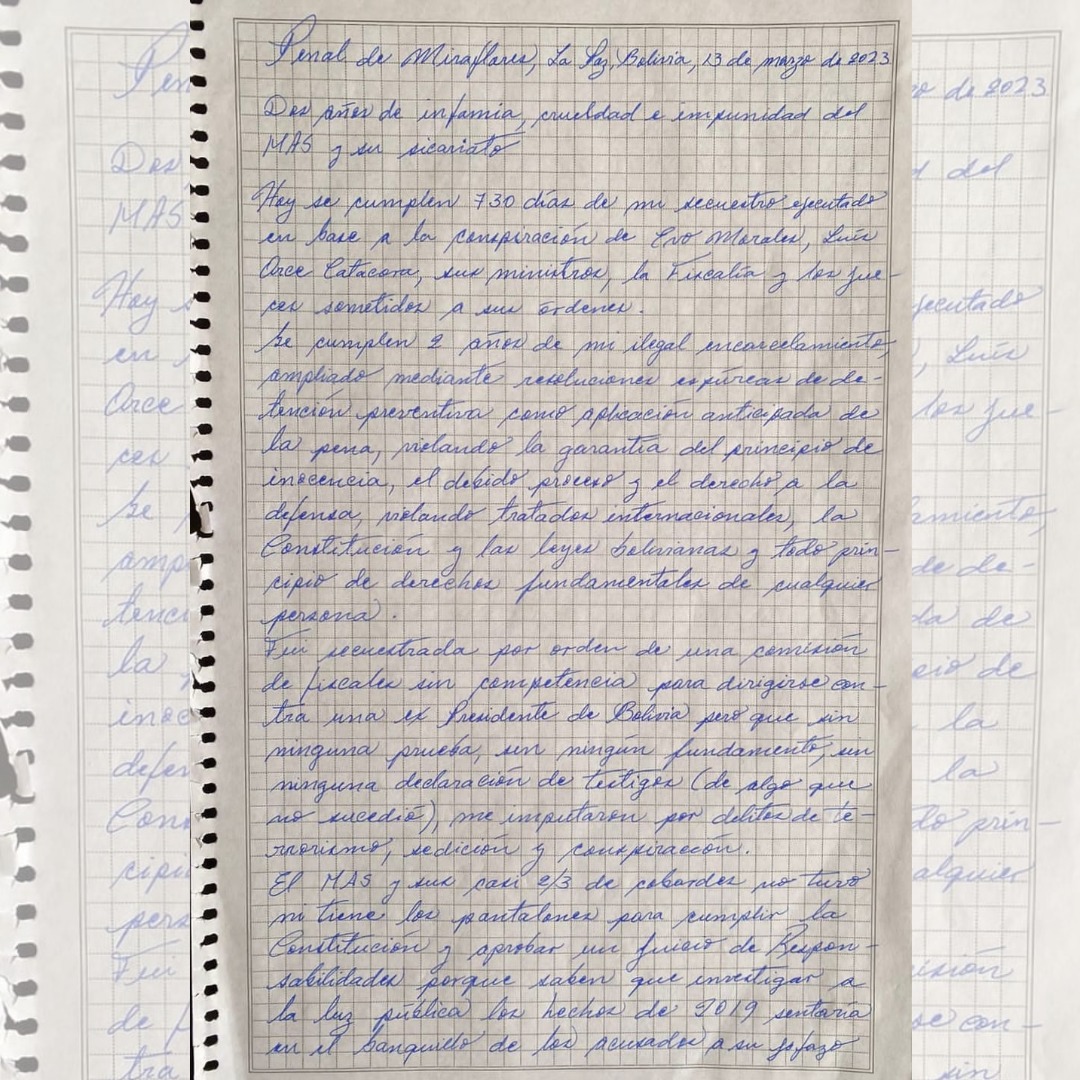 Penal de Miraflores, La Paz, Bolivia, 13 de marzo de 2023
Dos años de infamia, crueldad e impunidad del
MAS y su sicariato
Hoy se cumplen 730 días de mi secuestro ejecutado
en base a la conspiración de Evo Morales, Luis
Arce Catacora, sus ministros, la Fiscalía y los jue-
ces sometidos a sus órdenes.
Se cumplen 2 años de mi ilegal encarcelamiento,
ampliado mediante resoluciones espúreas de de-
tención preventiva como aplicación anticipada de
la pena, violando la garantía del principio de
inocencia, el debido proceso y el derecho a la
defensa, violando tratados internacionales, la
Constitución y las leyes bolivianas y todo prin-
cipio de derechos fundamentales de cualquier
persona.
Fui secuestrada por orden de una comisión
de fiscales sin competencia para dirigirse con-
tra una ex Presidente de Bolivia pero que sin
ninguna prueba, sin ningún fundamento, sin
ninguna declaración de testigos (de algo que
no sucedió), me imputaron por delitos de te-
rrorismo, sedición y conspiración.
El MAS y sus casi 2/3 de cobardes no tuvo
ni tiene los pantalones para cumplir la
Constitución y aprobar un juicio de Respon-
sabilidades porque saben que investigar a
la luz pública los hechos de 2019 sentaría
en el banquillo de los acusados a su jefazo